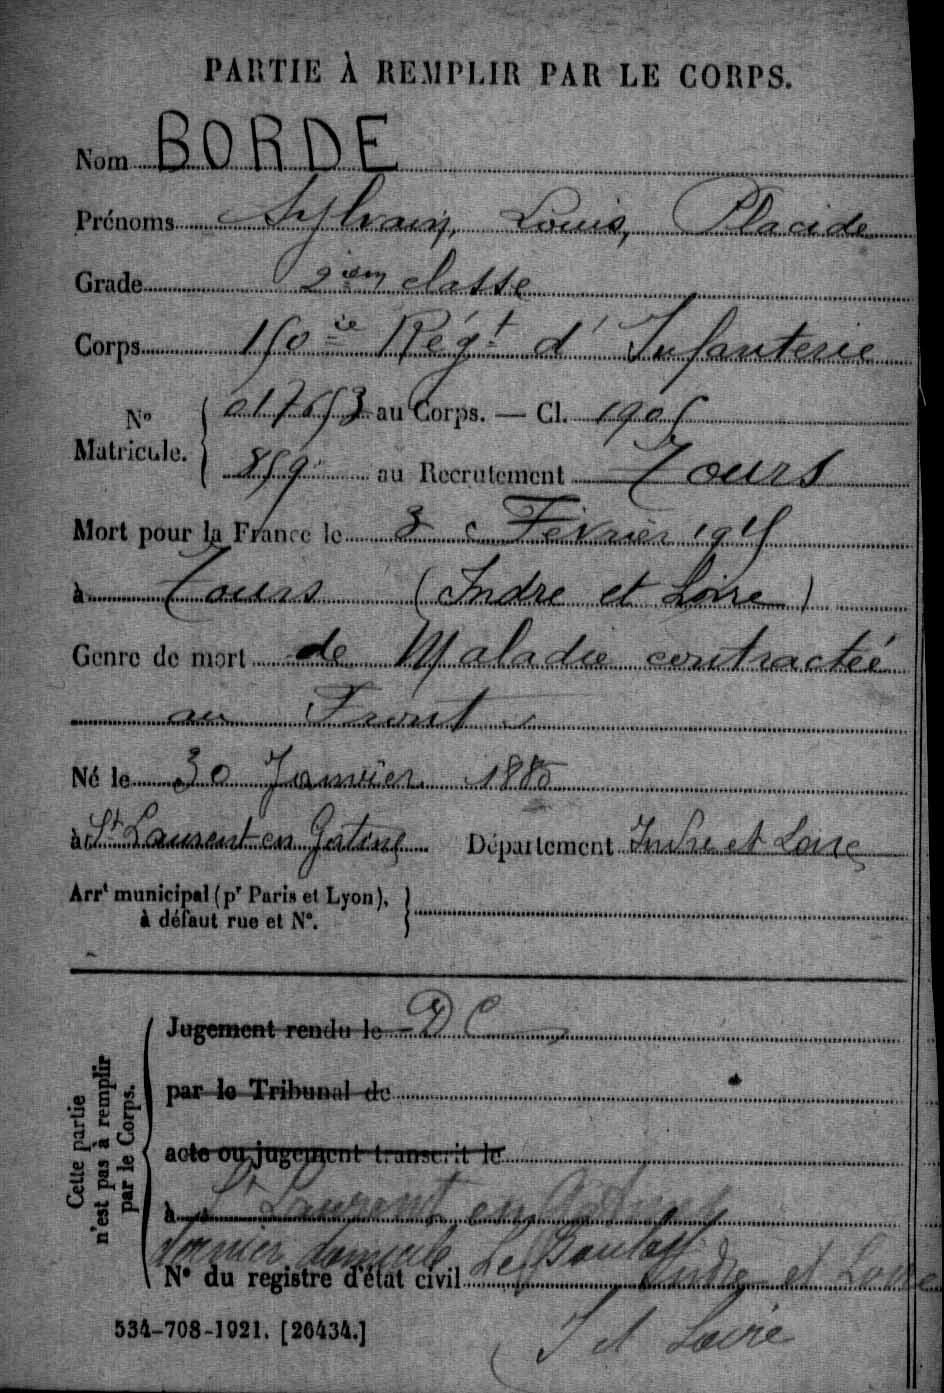 PARTIE À REMPLIR PAR LE CORPS.
Nom BORDE
Prénoms Sylvain, Louis, Placide
Grade 2ièm classe
Corps 150ie Régt d'Infanterie
No Matricule. { 017653 au Corps. — Cl. 1905
859 au Recrutement Tours
Mort pour la France le 3 Février 1915
à Tours (Indre et Loire)
Genre de mort de Maladie contractée
au Front
Né le 30 Janvier 1885
à St Laurent en Gatine Département Indre et Loire
Arrt municipal (pr Paris et Lyon),
à défaut rue et No.
Cette partie
n'est pas à remplir
par le Corps.
Jugement rendu le DC
par le Tribunal de
acte ou jugement transcrit le
à St Laurent en Gatine
dernier domicile Le Boulay Indre et Loire
No du registre d'état civil
I et Loire
534-708-1921. [26434.]